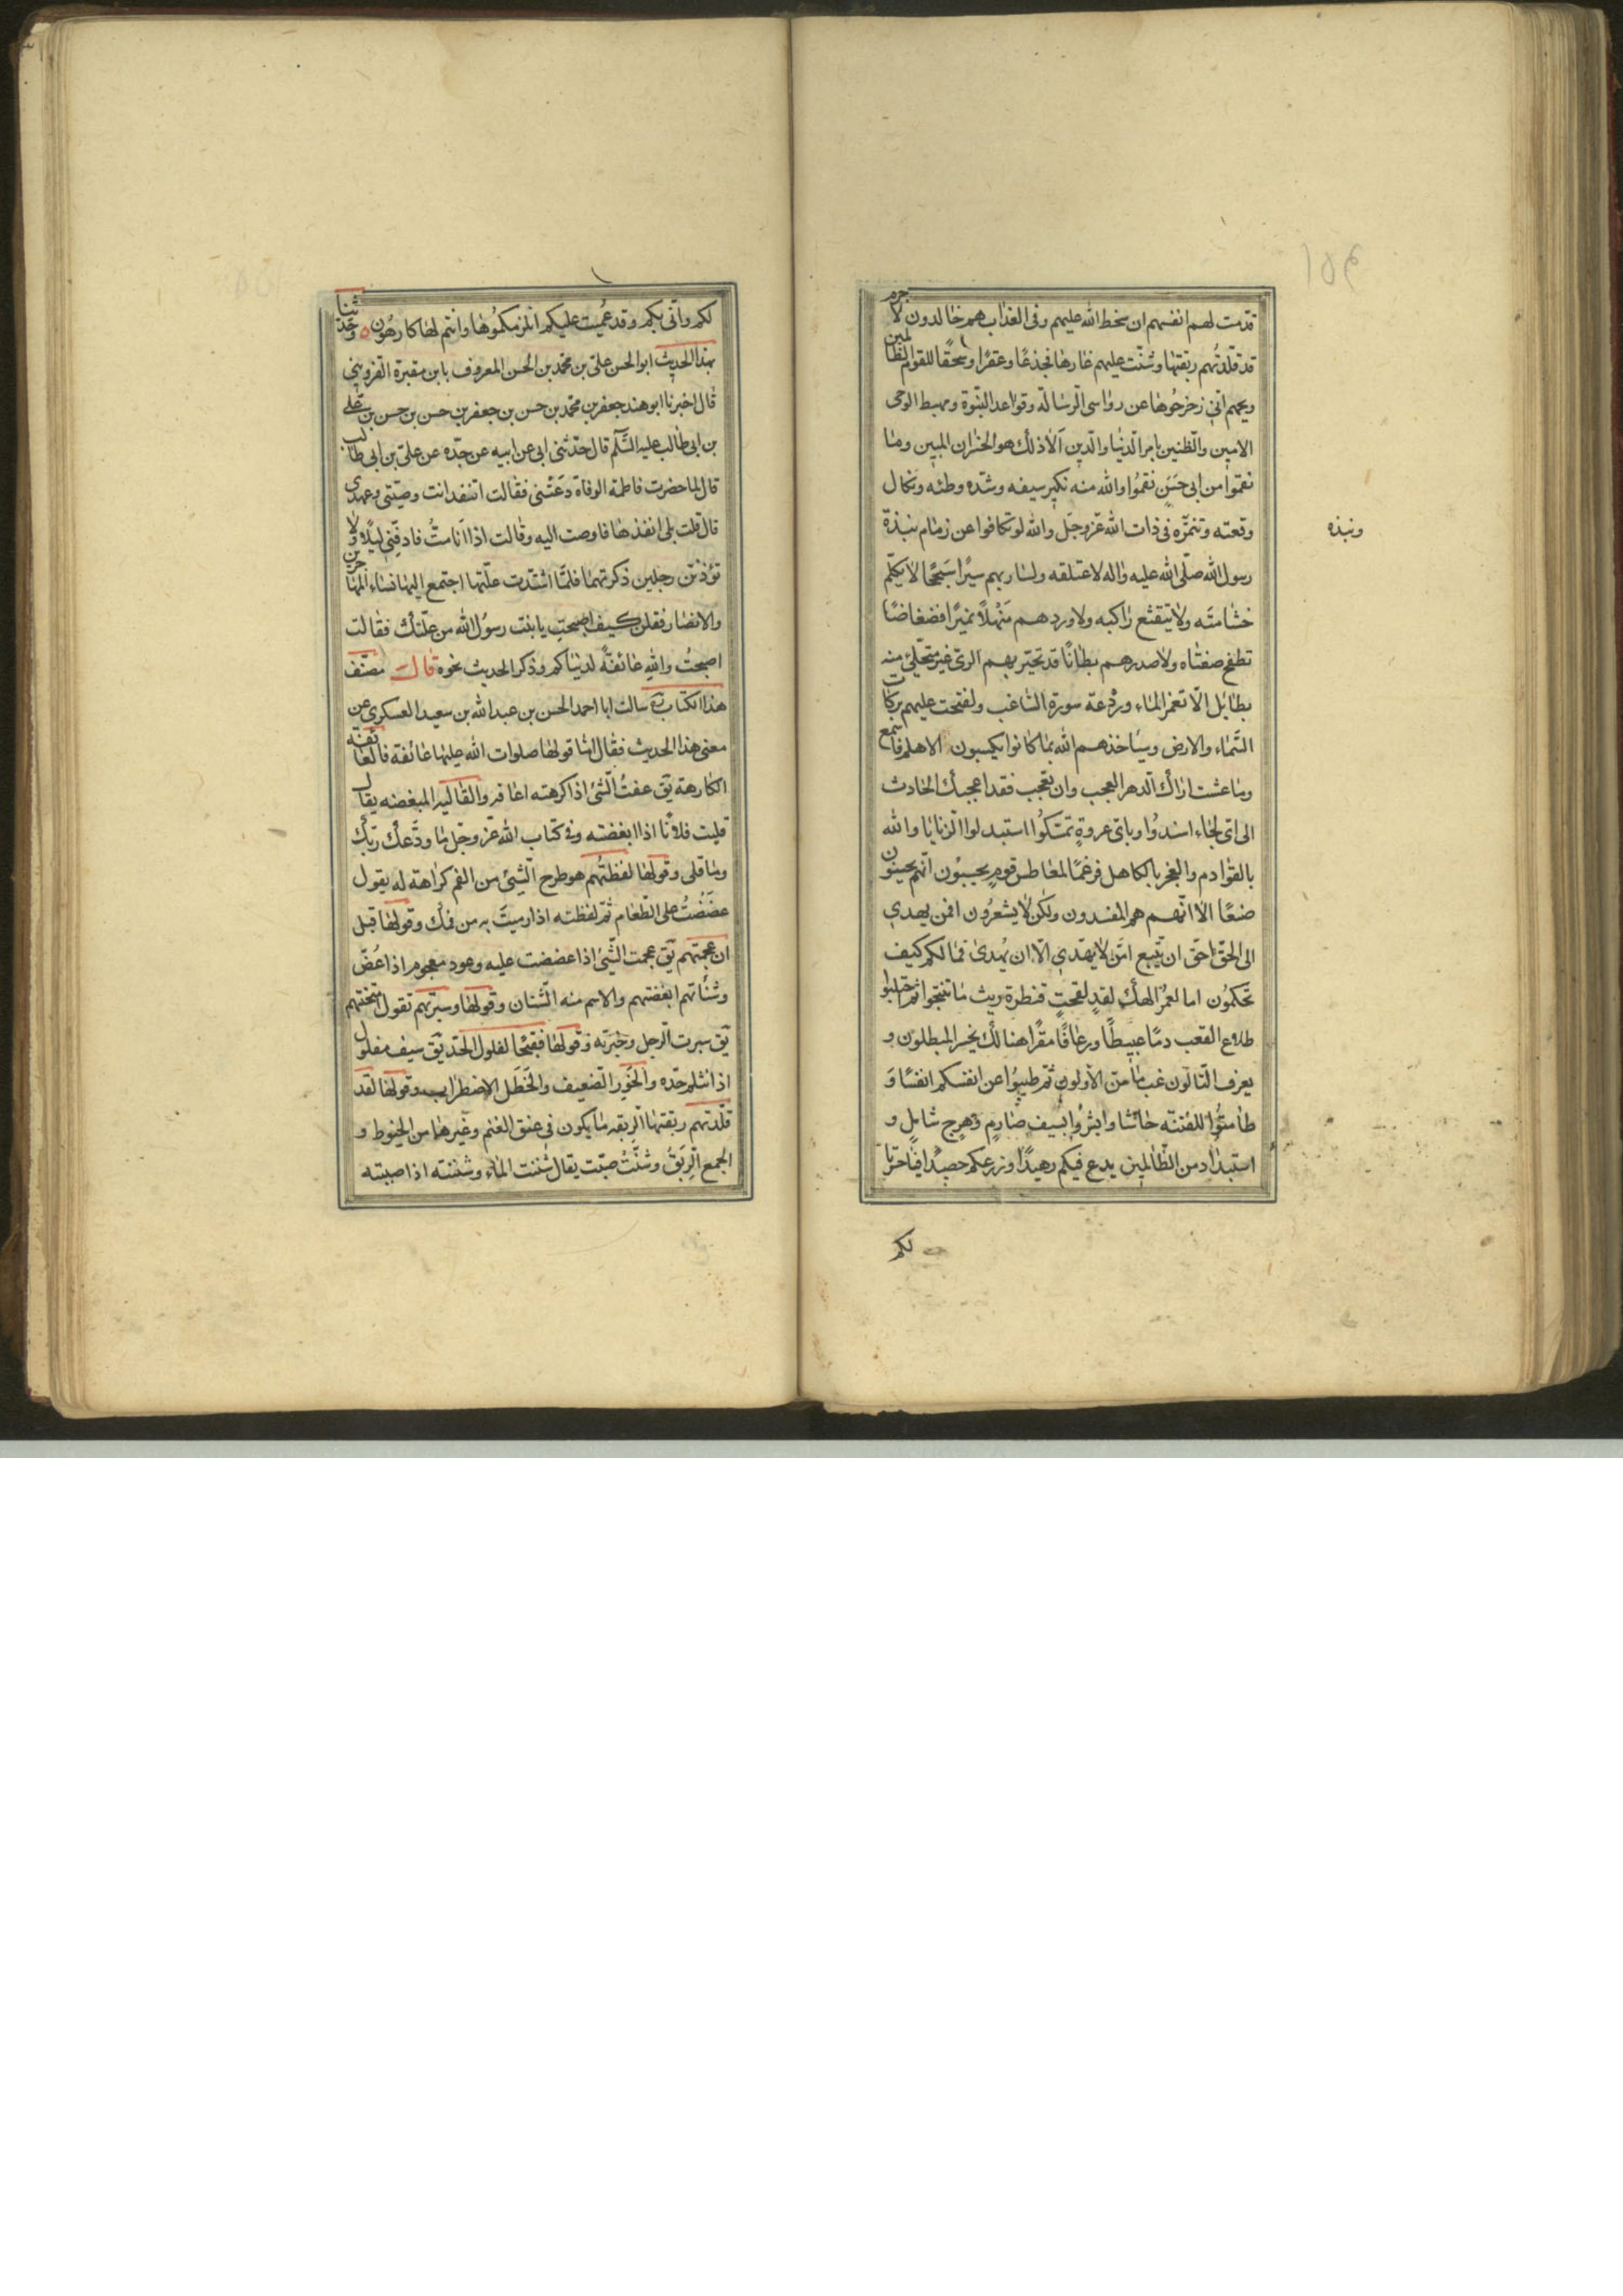 قدمت لهم انفسهم ان سخط الله عليهم وفى العذاب هم خالدون لا جرم
قد قلّدتُهم ربقتها وشنّت عليهم غارها فجدعًا وعقرًا وسحقًا للقوم الظالمين
ويحهم انّى زحزحُوها عن رواسى الرسالة وقواعد النبّوة ومهبط الوحى
الامين والطّبين بامر الدّنيا والدّين الا ذلك هو الخسران المبين وما
نقموا من ابى حسَن نقمُوا والله منه نكير سيفه وشدّه وطئه ونكال
وقعته وتنمّره فى ذات الله عزّ وجلّ والله لو تكافوا عن زمام نبذة
ونبذه
رسول الله صلّى الله عليه واله لاعتلقه ولسار بهم سيرًا سَجحًا لا يكلّم
خشاشه ولا يتقتع راكبه ولاوردهم مَنْهلًا نميرًا فضفاضًا
تطفح ضفتاه ولاصدرهم بطانًا قد تحيّر بهم الرىّ غير متحلّى منه
بطائل الّا بغمر الماء وردْعة سورة الشاغب ولفتحت عليهم بركات
السّماء والارض وسيَاخذهم الله بما كانوا يكسبون الا هلم فاسمع
وما عشت اراك الدهر العجب وان تعجب فقد اعجبك الحادث
الى اىّ لجاء اسندُوا وباىّ عروةٍ تمسّكُوا استبدلوا الذنابا والله
بالقوادم والعجز بالكاهل فرغمًا لمعاطس قومٍ يحسبُون انّهم يحسنون
صنعًا الا انّهم هم المفسدون ولكن لا يشعرُون افمن يهدى
الى الحقّ احقّ ان يتّبع امّن لا يهدّى الّا ان يُهدى فما لكم كيف
تحكمُون اما لعمرُ الهك لقد لقحت فنظرة ريث ما تنتجوا ثم احتلبوا
طلاع القعب دمًا عبيطًا وزعافًا ممقرًا هنالك يخسر المبطلون و
يعرف التّالون غبّ ما سنّ الاولون ثمّ طيبُوا عن انفسكم انفسًا وَ
طامنُوا للفتنه جائشا وابشرُوا بسيف صارمٍ وهرج شاملٍ و
استبداد من الظّالمين يدع فيئكم زهيدًا وزرعكم حصيدًا فيا حسرتا
لكم
لكم وانّى بكم وقد عُميت عليكم انلزمكمُوها وانتم لها كارهُون ه وحدّثنا
بهذا الحديث ابو الحسن علىّ بن محمّد بن الحسن المعروف بابن مقبرة القزوينى
قال اخبرنا ابو هند جعفر بن محمّد بن حسن بن جعفر بن حسن بن حسن بن علىّ
بن ابى طالب عليه السّلم قال حدّثنى ابى عن ابيه عن جدّه عن علىّ بن ابى طالب
قال لما حضرت فاطمة الوفاة دعَتنى فقالت اتنفذ انت وصيّتى وعهدى
قال قلت بلى انفذها فاوصت اليه وقالت اذا اَنا متُّ فادفِنّى ليلًا ولا
تؤذننّ رجلين ذكرتهما فلمّا اشتدت علّتها اجتمع اليها نساء المهاجرين
والانصار فقلن كيف اصبحت يا بنت رسوُل الله من علّتك فقالت
اصبحتُ والله عائفةً لدنياكم وذكر الحديث نحوه قال مصنّف
هذا الكتاب ره سالت ابا احمد الحسن بن عبد الله بن سعيد العسكرى عن
معنى هذا الحديث فقال امّا قولها صلوات الله عليها عائفة فالعائفة
الكارهة يق عفتُ الشّئ اذا كرهته اعافه والقاليه المبغضه يقال
قليت فلانًا اذا ابغضته وفى كتاب الله عزّ وجلّ ما ودَّعك ربّك
وما قلى وقولها لفظتُهم هو طرح الشّئ من الفم كراهة له يقول
عضَضْتُ على الطّعام ثمّ لفظته اذا رميتَ به من فمك وقولها قبل
ان عجمتهم يق عجمت الشّئ اذا عضضت عليه وعود معجوم اذا عُضّ
وشنأتهم ابغضتهم والاسم منه الشّنان وقولها وسبرتهم تقول امتحنتهم
يق سبرت الرجل وخبَرته وقولها فقبحًا لفلول الحدّ يق سيف مفلول
اذا انثلم حدّه والخَوَر الضعيف والخَطَل الاضطراب وقولها لقد
قلّدتهم ربقتها الرِبقه ما يكون فى عنق الغنم وغيرها من الخيوط و
الجمع الرِبَقُ وشنّتْ صبّت يقال شننت الماء وشننته اذا صببته